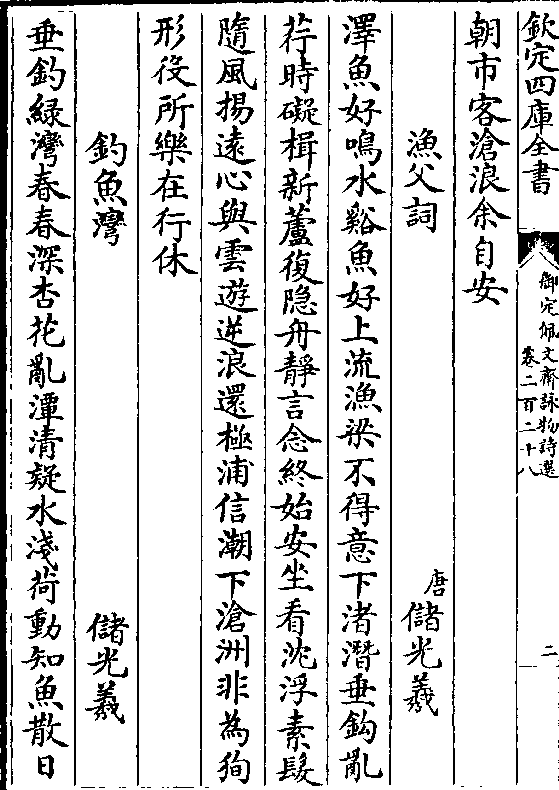 欽定四庫全書
御定佩文齋詠物詩選
卷二百二十八
二
朝市客滄浪余自安
漁父詞
唐儲光羲
澤魚好鳴水谿魚好上流漁梁不得意下渚潛垂鈎亂
荇時礙楫新蘆復隐舟靜言念終始安坐看沈浮素髮
隨風揚遠心與雲遊逆浪還極浦信潮下滄洲非為狥
形役所樂在行休
釣魚灣
儲光羲
垂釣緑灣春春深杏花亂潭清疑水淺荷動知魚散日